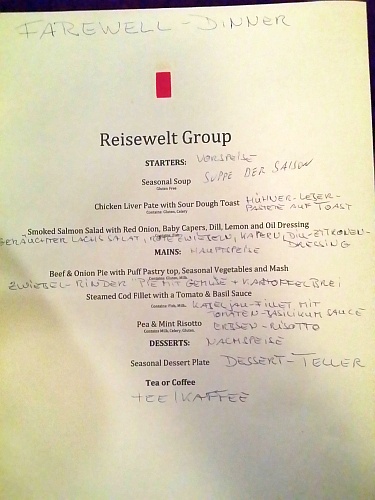 FAREWELL - DINNER
Reisewelt Group
STARTERS: VORSPEISE
Seasonal Soup SUPPE DER SAISON
Gluten Free
Chicken Liver Pate with Sour Dough Toast HÜHNER-LEBER-
Contains: Gluten, Celery PASTETE AUF TOAST
Smoked Salmon Salad with Red Onion, Baby Capers, Dill, Lemon and Oil Dressing
GERÄUCHTER LACHSSALAT, ROTE ZWIEBELN, KAPERN, DILL-ZITRONEN-
DRESSING
MAINS: HAUPTSPEISE
Beef & Onion Pie with Puff Pastry top, Seasonal Vegetables and Mash
ZWIEBEL-RINDER PIE MIT GEMÜSE + KARTOFFELBREI
Steamed Cod Fillet with a Tomato & Basil Sauce
Contains: Fish, Milk. KABELJAU-FILLET MIT
TOMATEN-BASILIKUM SAUCE
Pea & Mint Risotto ERBSEN-RISOTTO
Contains Milk, Celery.
DESSERTS: NACHSPEISE
Seasonal Dessert Plate DESSERT-TELLER
Tea or Coffee
TEE/KAFFEE